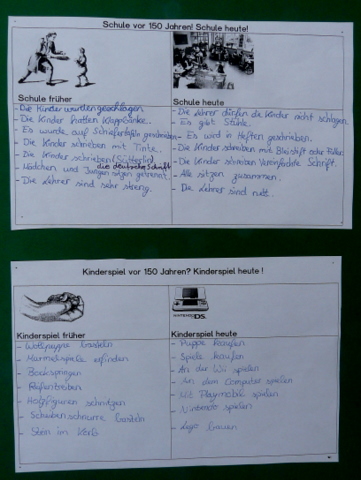 Schule vor 150 Jahren! Schule heute!
Schule früher
- Die Kinder wurden geschlagen
- Die Kinder hatten Klappbänke.
- Es wurde auf Schiefertafeln geschrieben
- Die Kinder schrieben mit Tinte.
- Die Kinder schrieben (Sütterlin)
die deutsche Schrift
- Mädchen und Jungen sitzen getrennt
- Die Lehrer sind sehr streng.
Schule heute
- Die Lehrer dürfen die Kinder nicht schlagen.
- Es gibt Stühle.
- Es wird in Heften geschrieben.
- Die Kinder schreiben mit Bleistift oder Füller
- Die Kinder schreiben Vereinfachte Schrift.
- Alle sitzen zusammen.
- Die Lehrer sind nett.
Kinderspiel vor 150 Jahren? Kinderspiel heute !
Kinderspiel früher
- basteln
- Murmelspiele erfinden
- Bockspringen
- Reifentreiben
- Holzfiguren schnitzen
- basteln
- Stein im
NINTENDO DS
Kinderspiel heute
- Puppe kaufen
- Spiele kaufen
- An der Wii spielen
- An dem Computer spielen
- Mit Playmobil spielen
- Nintendo spielen
- Lego bauen